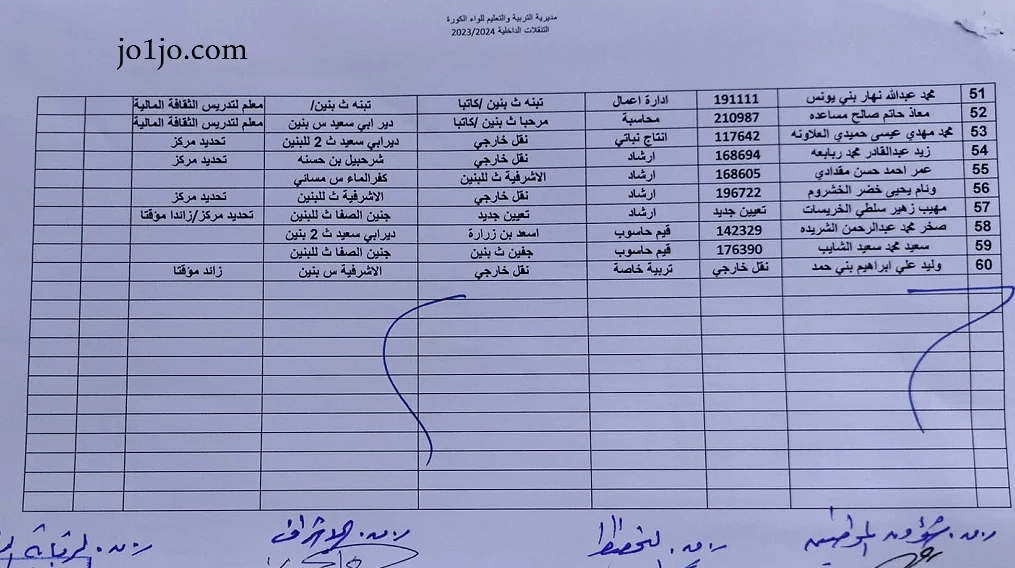 مديرية التربية والتعليم للواء الكورة
التنقلات الداخلية 2023/2024
jo1jo.com
51 محمد عبدالله نهار بني يونس 191111 ادارة اعمال تبنه ث بنين /كاتبا تبنه ث بنين/ معلم لتدريس الثقافة المالية
52 معاذ حاتم صالح مساعده 210987 محاسبة مرحبا ث بنين /كاتبا دير ابي سعيد س بنين معلم لتدريس الثقافة المالية
53 محمد مهدي عيسى حميدي العلاونه 117642 انتاج نباتي نقل خارجي ديرابي سعيد ث 2 للبنين تحديد مركز
54 زيد عبدالقادر محمد ربابعه 168694 ارشاد نقل خارجي شرحبيل بن حسنه تحديد مركز
55 عمر احمد حسن مقدادي 168605 ارشاد الاشرفية ث للبنين كفرالماء س مسائي
56 ونام يحيى خضر الخشروم 196722 ارشاد نقل خارجي الاشرفية ث للبنين تحديد مركز
57 مهيب زهير سلطي الخريسات تعيين جديد ارشاد تعيين جديد جنين الصفا ث للبنين تحديد مركز/زاندا مؤقتا
58 صخر محمد عبدالرحمن الشريده 142329 قيم حاسوب اسعد بن زرارة ديرابي سعيد ث 2 بنين
59 سعيد محمد سعيد الشايب 176390 قيم حاسوب جفين ث بنين جنين الصفا ث للبنين
60 وليد علي ابراهيم بني حمد نقل خارجي تربية خاصة نقل خارجي الاشرفية س بنين زاند مؤقتا
ر.ق. شؤون الموظفين ر.ق. التخطيط ر.ق. الاشراف ر.ق. الرقابة